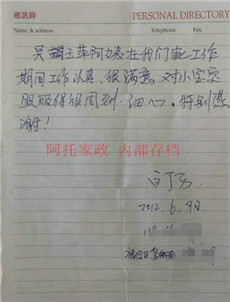 通訊錄
PERSONAL DIRECTORY
Name & address Telephone Fax
阿姨在我们家工作
期间工作认真、很满意、对小宝宝
照顾得很周到、细心。特别感
谢!
阿托家政 内部存档
2012.6.9日